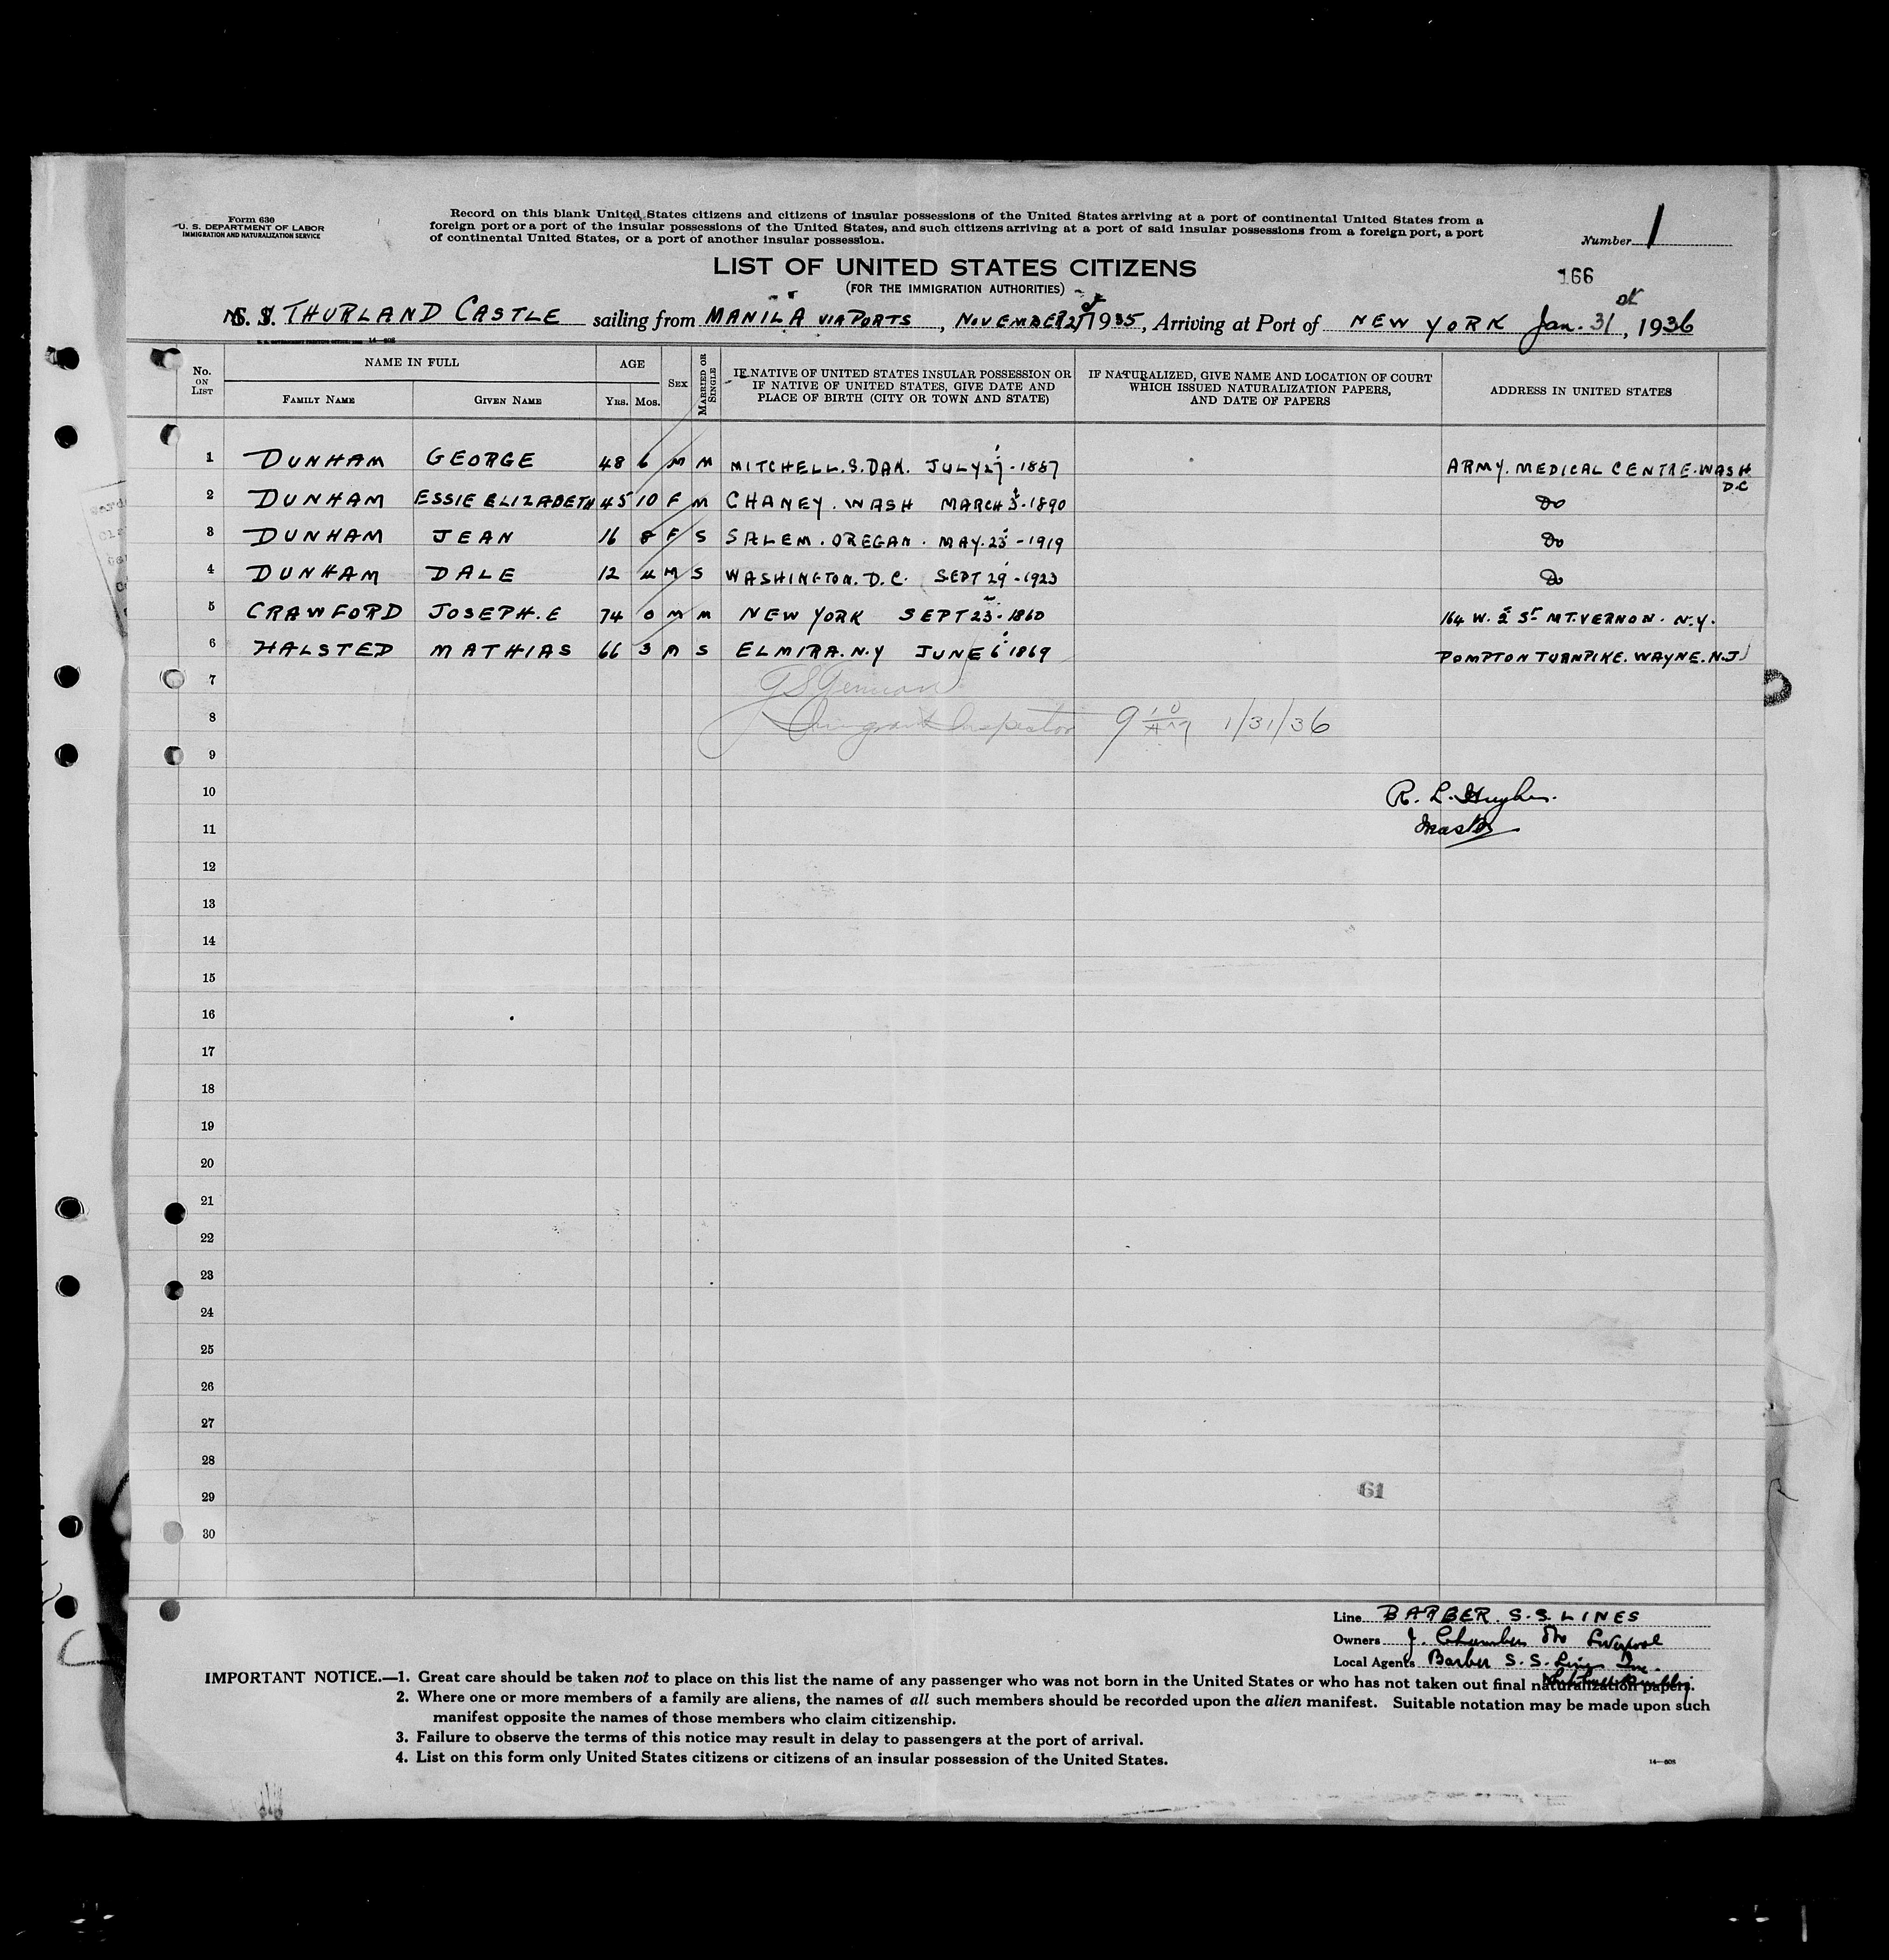 Form 630
U. S. DEPARTMENT OF LABOR
IMMIGRATION AND NATURALIZATION SERVICE
Record on this blank United States citizens and citizens of insular possessions of the United States arriving at a port of continental United States from a
foreign port or a port of the insular possessions of the United States, and such citizens arriving at a port of said insular possessions from a foreign port, a port
of continental United States, or a port of another insular possession.
Number 1
LIST OF UNITED STATES CITIZENS
(FOR THE IMMIGRATION AUTHORITIES)
166
THURLAND CASTLE sailing from MANILA VIA PORTS, NOVEMBER 1935, Arriving at Port of NEW YORK Jan. 31st, 1936
14—608
No. ON LIST
NAME IN FULL
FAMILY NAME
GIVEN NAME
AGE
YRS. MOS.
SEX
MARRIED OR SINGLE
IF NATIVE OF UNITED STATES INSULAR POSSESSION OR
IF NATIVE OF UNITED STATES, GIVE DATE AND
PLACE OF BIRTH (CITY OR TOWN AND STATE)
IF NATURALIZED, GIVE NAME AND LOCATION OF COURT
WHICH ISSUED NATURALIZATION PAPERS,
AND DATE OF PAPERS
ADDRESS IN UNITED STATES
1 DUNHAM GEORGE 48 6 M M MITCHELL. S. DAK. JULY 27-1887 ARMY. MEDICAL CENTRE. WASH D.C
2 DUNHAM ESSIE ELIZABETH 45 10 F M CHANEY. WASH MARCH 3-1890 DO
3 DUNHAM JEAN 16 8 F S SALEM. OREGAN. MAY. 25-1919 DO
4 DUNHAM DALE 12 4 M S WASHINGTON. D.C. SEPT 29-1923 DO
5 CRAWFORD JOSEPH. E 74 0 M M NEW YORK SEPT 23-1860 164 W. 2 ST MT. VERNON. N.Y.
6 HALSTED MATHIAS 66 3 M S ELMIRA. N.Y JUNE 6 1869 POMPTON TURNPIKE. WAYNE. N.J
7
8 Immigrant Inspector 9 10 AM 1/31/36
9
10 R. L. Hughes.
11 Master
12
13
14
15
16
17
18
19
20
21
22
23
24
25
26
27
28
29
61
30
Line BARBER. S.S. LINES
Owners J. Chambers Liverpool
Local Agents Barber S.S. Lines Inc.
IMPORTANT NOTICE.—1. Great care should be taken not to place on this list the name of any passenger who was not born in the United States or who has not taken out final naturalization papers.
2. Where one or more members of a family are aliens, the names of all such members should be recorded upon the alien manifest. Suitable notation may be made upon such
manifest opposite the names of those members who claim citizenship.
3. Failure to observe the terms of this notice may result in delay to passengers at the port of arrival.
4. List on this form only United States citizens or citizens of an insular possession of the United States.
14—608